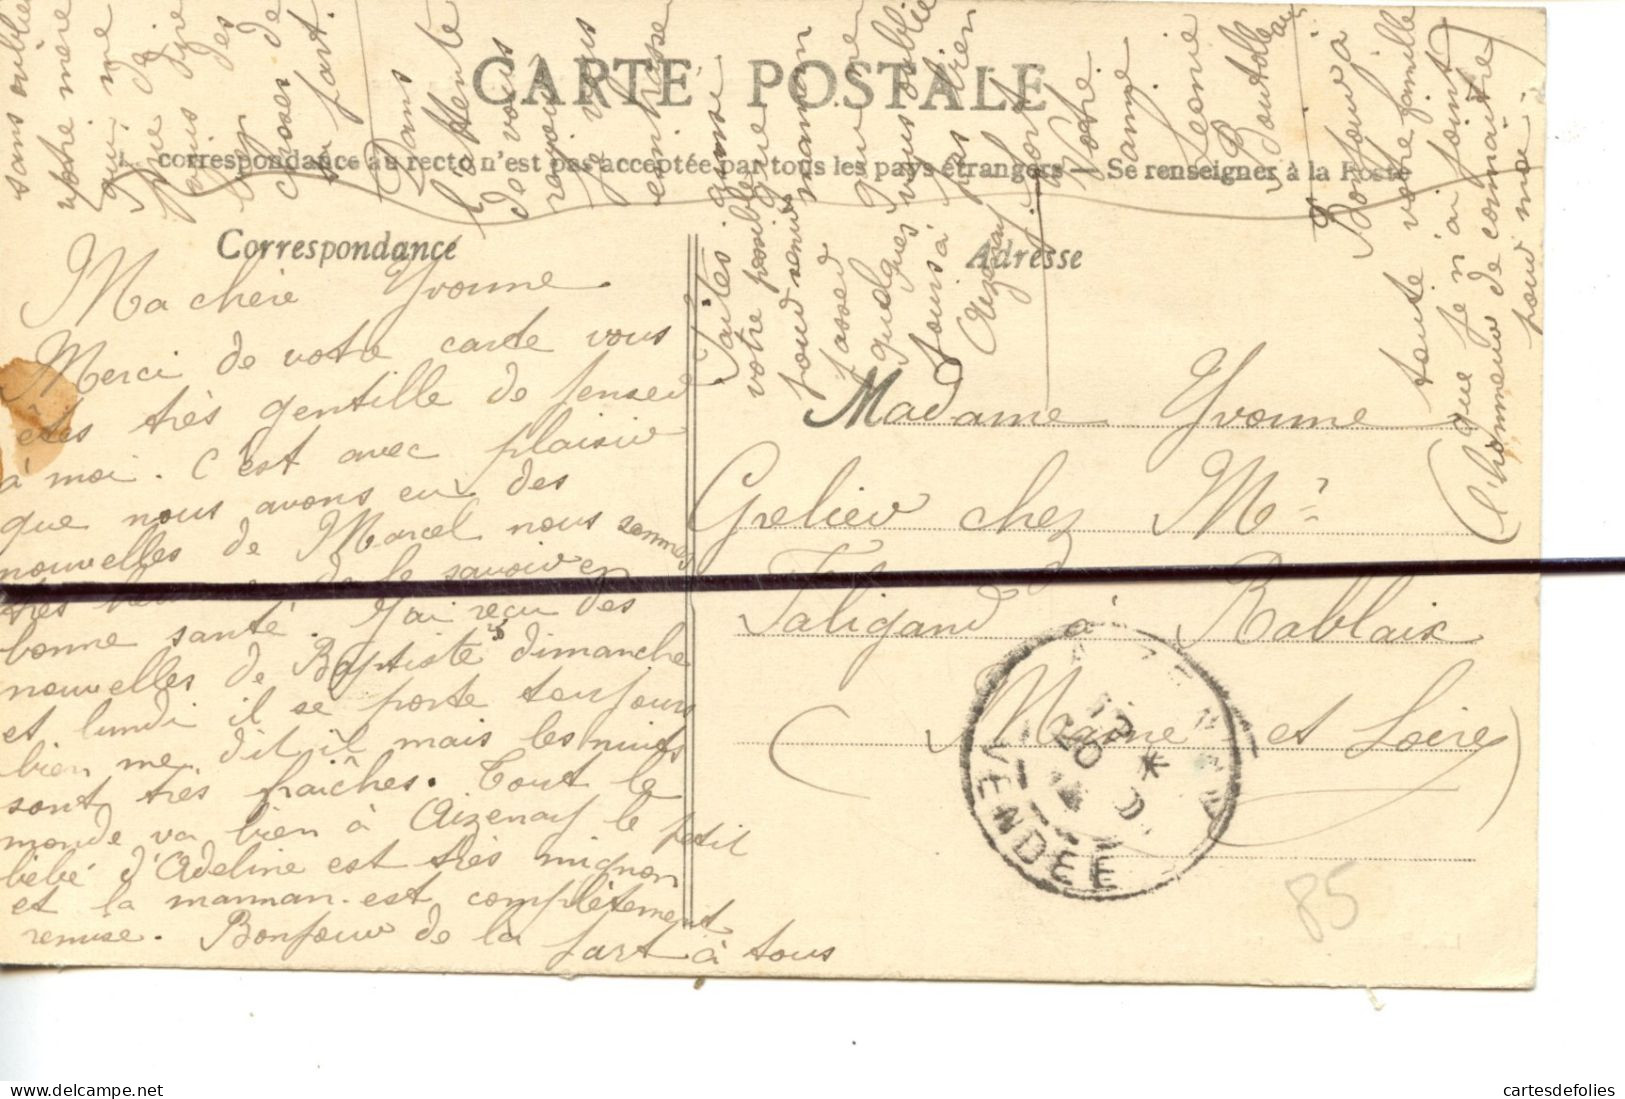 CARTE POSTALE
correspondance au recto n'est pas acceptée par tous les pays étrangers — Se renseigner à la Poste
Correspondance
Adresse
Ma chère Yvonne
Merci de votre carte vous
êtes très gentille de penser
à moi. C'est avec plaisir
que nous avons eu des
nouvelles de Marcel nous sommes
très de le savoir en
bonne santé. J'ai reçu des
nouvelles de Baptiste dimanche
et lundi il se porte toujours
bien me dit il mais les nuits
sont très fraîches. Tout le
monde va bien à Aizenay le petit
bébé d'Adeline est très mignon
et la manman est complètement
remise. Bonjour de la part à tous
sans oublier
votre mère
qui me
prie de
vous dire
bcp des
choses de
sa part.
Dans
l'attente
de vous
rejouir
je vous
embrasse
Votre
amie
Leonie
Boutolleau
Faites
votre possible
pour venir
passer
quelques
jours à
Aizenay
Bonjour à
toute votre famille
que je n'ai point
l'honneur de connaître
pour moi
Madame Yvonne
Grelier chez Mr
Taligand à Rablaix
(Maine et Loire)
VENDEE
20
85
cartesdefolies
https://www.delcampe.net